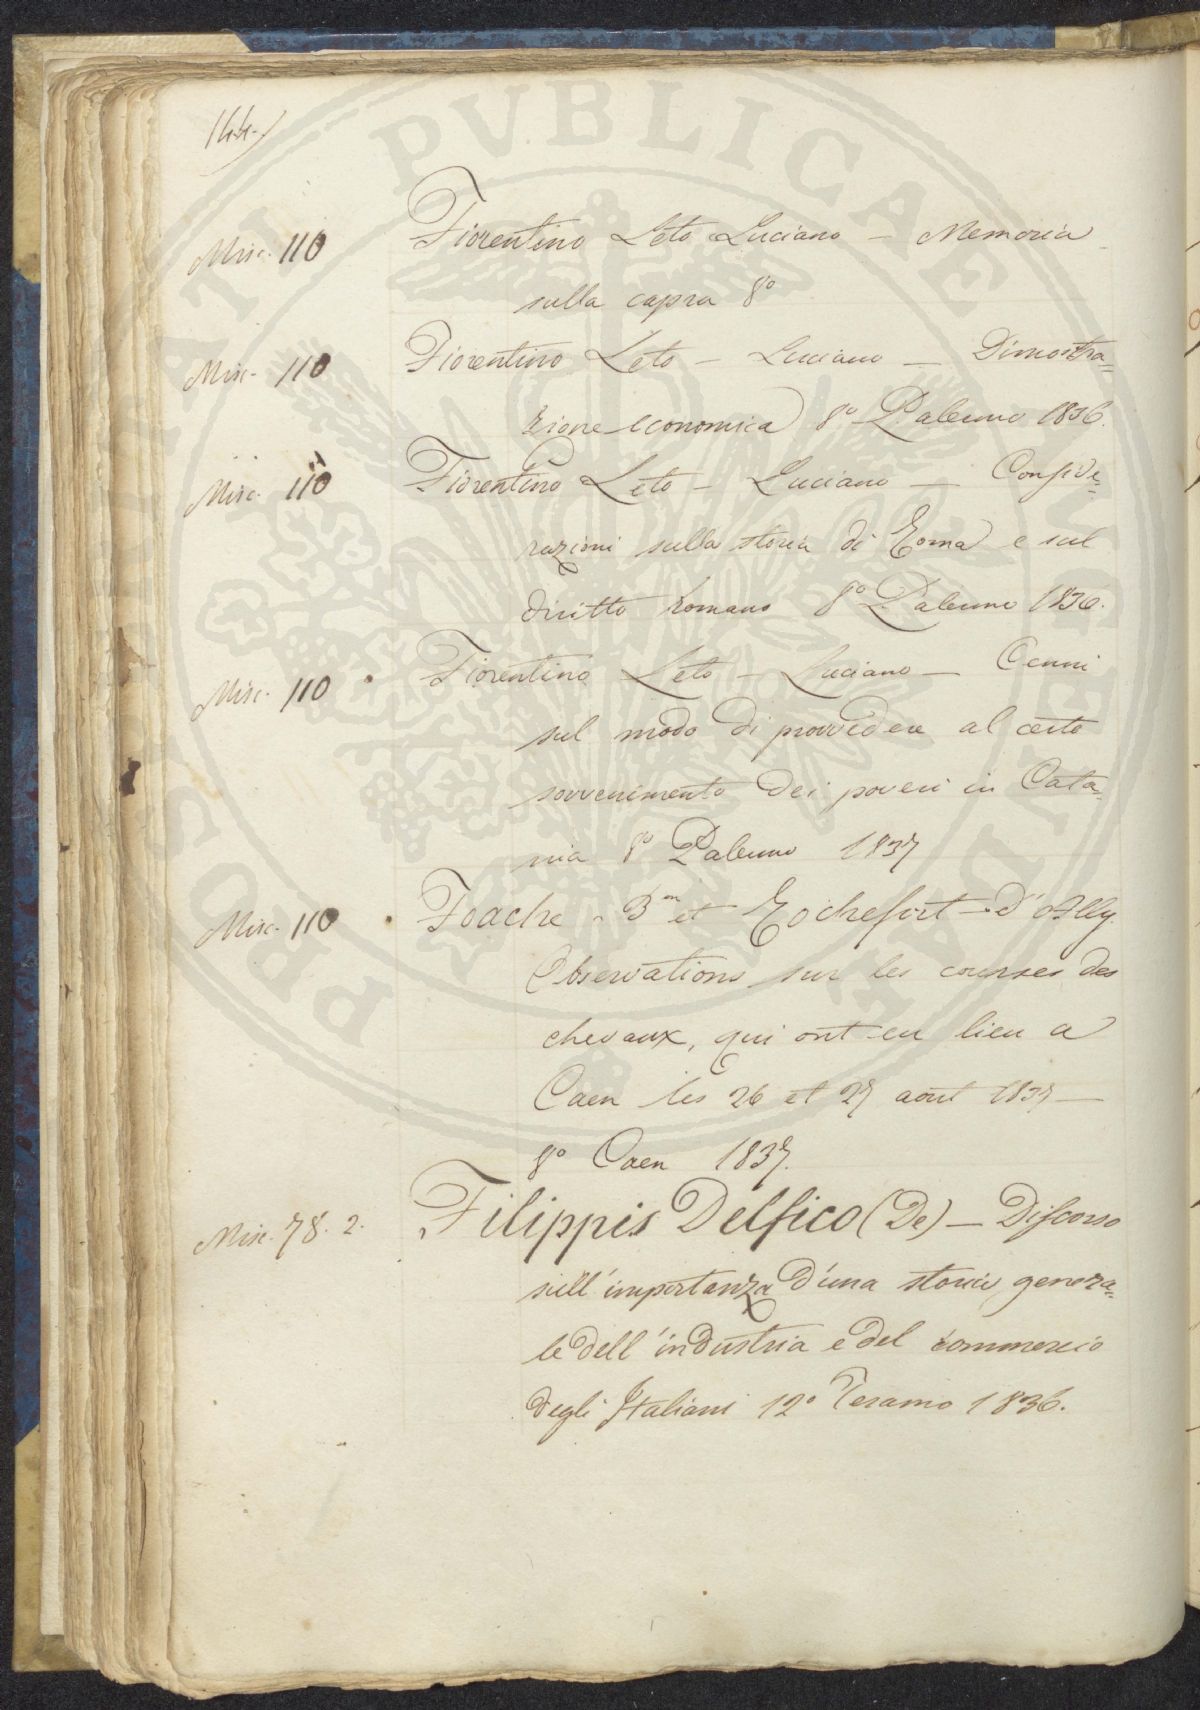 144.
Misc. 110 Fiorentino Leto Luciano – Memoria
sulla capra 8º
Misc. 110 Fiorentino Leto – Luciano – Dimostra=
zione economica 8º Palermo 1836.
Misc. 110 Fiorentino Leto – Luciano – Conside=
razioni sulla storia di Roma e sul
diritto romano 8º Palermo 1836.
Misc. 110 Fiorentino Leto – Luciano – Cenni
sul modo di provvedere al certo
sovvenimento dei poveri in Cata=
nia 8º Palermo 1837
Misc. 110 Foache – Bon et Rochefort – d'Ally.
Observations sur les courses des
chevaux, qui ont eu lieu a
Caen les 26 et 27 aout 1837 –
8º Caen 1837.
Misc. 78. 2. Filippis Delfico (De) – Discorso
sull'importanza d'una storia genera=
le dell'industria e del commercio
degli Italiani 12º Teramo 1836.
PROSPERITATI PVBLICAE AVGENDAE